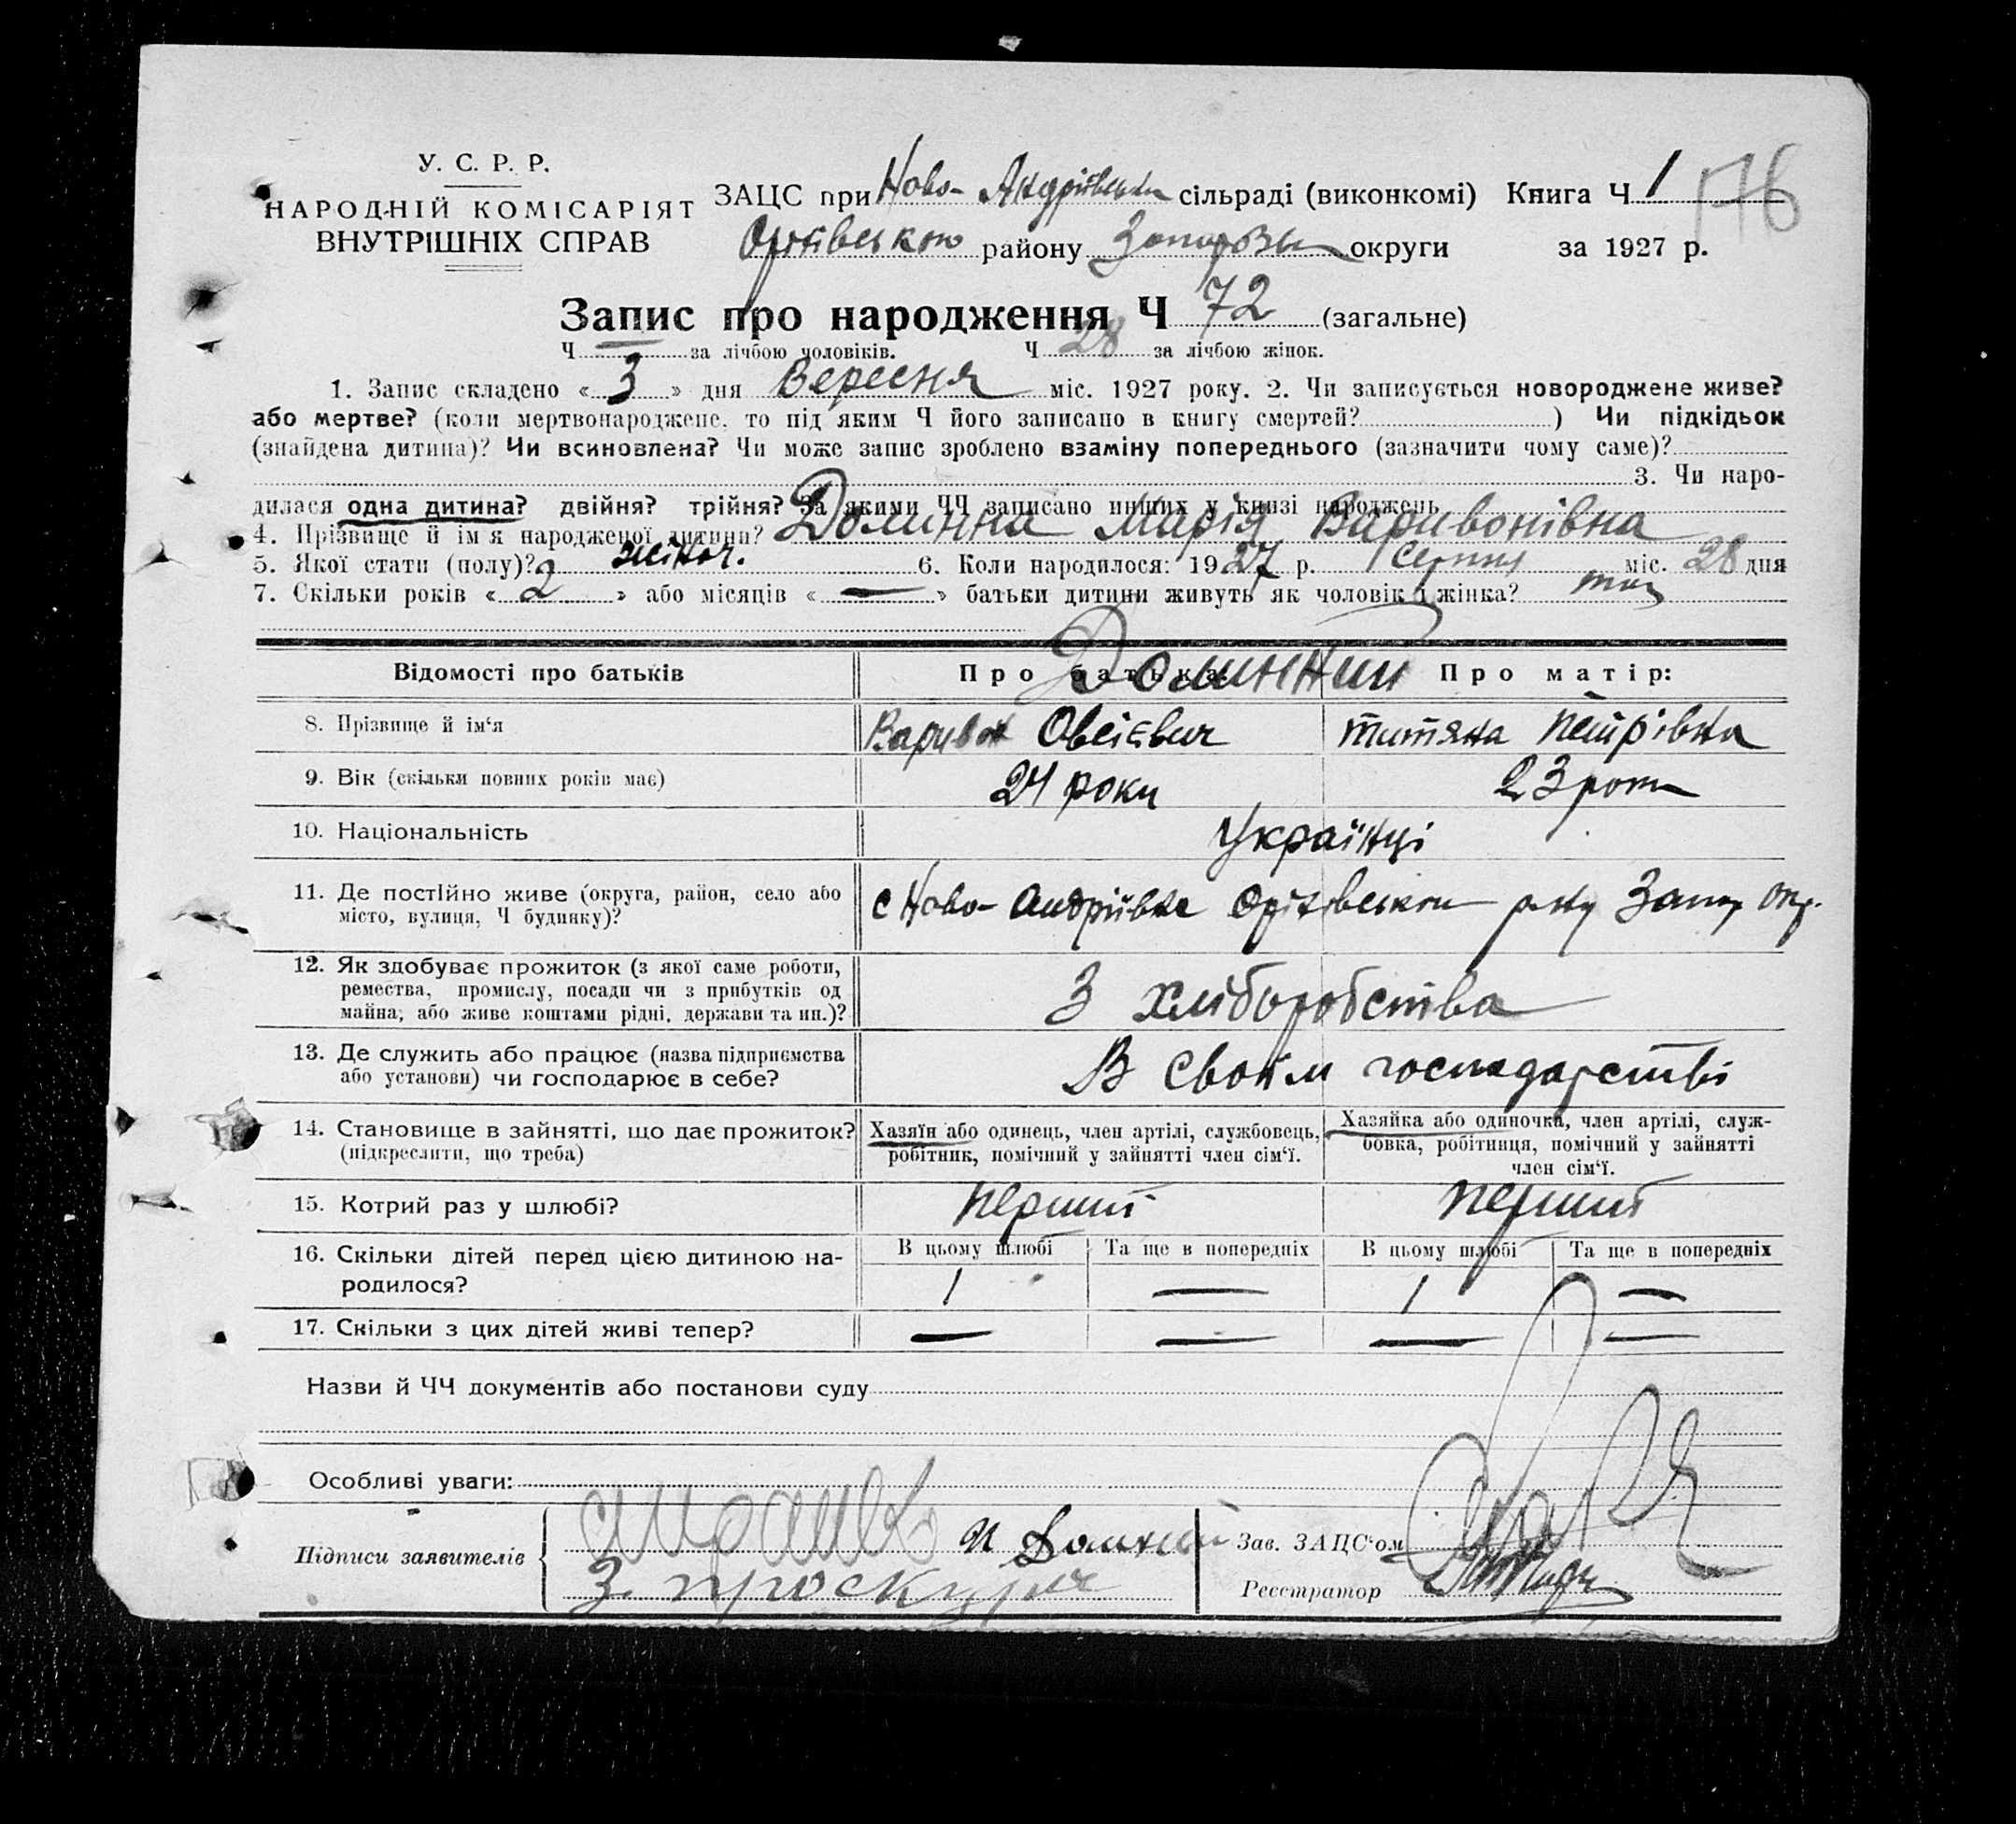 У. С. Р. Р.
НАРОДНІЙ КОМІСАРІЯТ
ВНУТРІШНІХ СПРАВ
ЗАЦС при Ново-Андріївська сільраді (виконкомі) Книга Ч 1 176
Оріхівського району Запорізьк округи за 1927 р.
Запис про народження Ч 72 (загальне)
Ч — за лічбою чоловіків. Ч 28 за лічбою жінок.
1. Запис складено « 3 » дня Вересня міс. 1927 року. 2. Чи записується новороджене живе?
або мертве? (коли мертвонароджене, то під яким Ч його записано в книгу смертей? ) Чи підкідьок
(знайдена дитина)? Чи всиновлена? Чи може запис зроблено взаміну попереднього (зазначити чому саме)?
3. Чи наро-
дилася одна дитина? двійня? трійня? За якими ЧЧ записано инших у книзі народжень
4. Прізвище й ім'я народженої дитини? Долинна Марія Варивонівна
5. Якої стати (полу)? жіноч. 6. Коли народилося: 1927 р. Серпня міс. 28 дня
7. Скільки років « 2 » або місяців « — » батьки дитини живуть як чоловік і жінка?
Відомості про батьків Про батька: Долинний Про матір:
8. Прізвище й ім'я Варивон Овсієвич Титяна Петрівна
9. Вік (скільки повних років має) 24 роки 23 роки
10. Національність Українці
11. Де постійно живе (округа, район, село або
місто, вулиця, Ч будинку)? с Ново-Андріївка Оріхівського р-ну Запор окр.
12. Як здобуває прожиток (з якої саме роботи,
ремества, промислу, посади чи з прибутків од
майна, або живе коштами рідні, держави та ин.)? З хліборобства
13. Де служить або працює (назва підприємства
або установи) чи господарює в себе? В своїм господарстві
14. Становище в зайнятті, що дає прожиток?
(підкреслити, що треба)
Хазяїн або одинець, член артілі, службовець,
робітник, помічний у зайнятті член сім'ї.
Хазяйка або одиночка, член артілі, служ-
бовка, робітниця, помічний у зайнятті
член сім'ї.
15. Котрий раз у шлюбі? перший перший
16. Скільки дітей перед цією дитиною на-
родилося?
В цьому шлюбі Та ще в попередніх В цьому шлюбі Та ще в попередніх
1 — 1 —
17. Скільки з цих дітей живі тепер? — — — —
Назви й ЧЧ документів або постанови суду
Особливі уваги:
Підписи заявителів
Зав. ЗАЦС'ом
З. проскура
Реєстратор